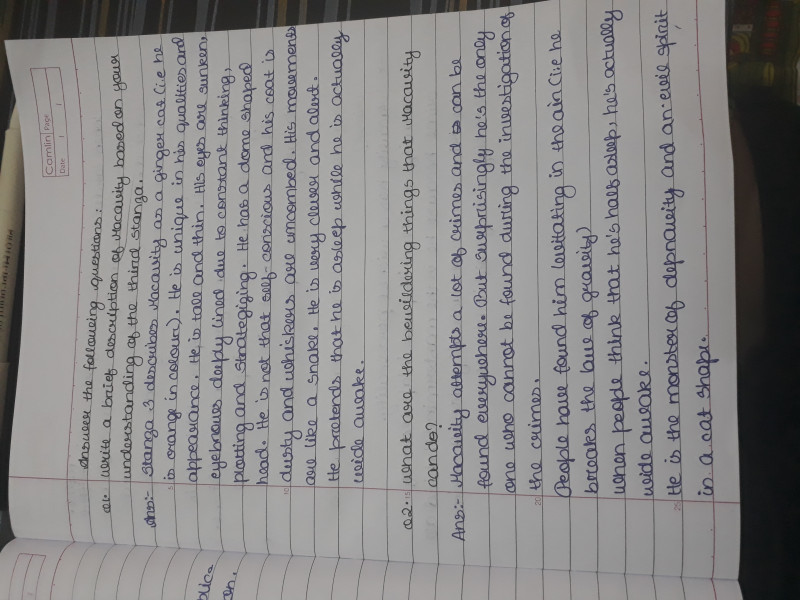 Camlin Page
Date / /
Answer the following questions:
Q1. Write a brief description of Macavity based on your
understanding of the third stanza.
Ans:- Stanza 3 describes Macavity as a ginger cat (i.e he
is orange in colour). He is unique in his qualities and
appearance. He is tall and thin. His eyes are sunken,
eyebrows deeply lined due to constant thinking,
plotting and strategizing. He has a dome shaped
head. He is not that self-conscious and his coat is
dusty and whiskers are uncombed. His movements
are like a snake. He is very clever and alert.
He pretends that he is asleep while he is actually
wide awake.
Q2. What are the bewildering things that Macavity
can do?
Ans:- Macavity attempts a lot of crimes and can be
found everywhere. But surprisingly he's the only
one who cannot be found during the investigation of
the crimes.
People have found him levitating in the air (i.e he
breaks the law of gravity)
When people think that he's half asleep, he's actually
wide awake.
He is the monster of depravity and an evil spirit
in a cat shape.